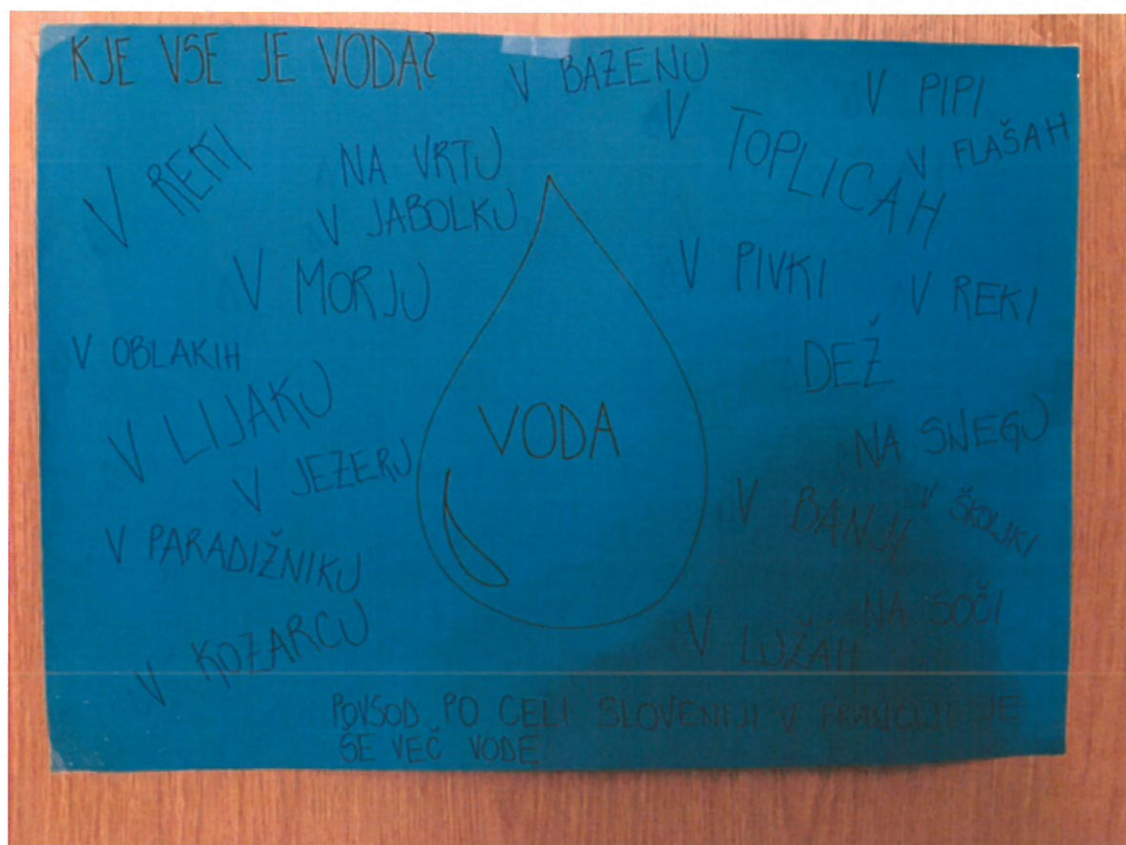 KJE VSE JE VODA?
V BAZENU
V PIPI
V TOPLICAH
V FLAŠAH
V REKI
NA VRTU
V JABOLKU
V MORJU
V PIVKI
V REKI
V OBLAKIH
DEŽ
V LIJAKU
VODA
NA SNEGU
V JEZERU
V BANJI
V ŠKOLJKI
V PARADIŽNIKU
NA SOČI
V KOZARCU
V LUŽAH
POVSOD PO CELI SLOVENIJI V JE
ŠE VEČ VODE